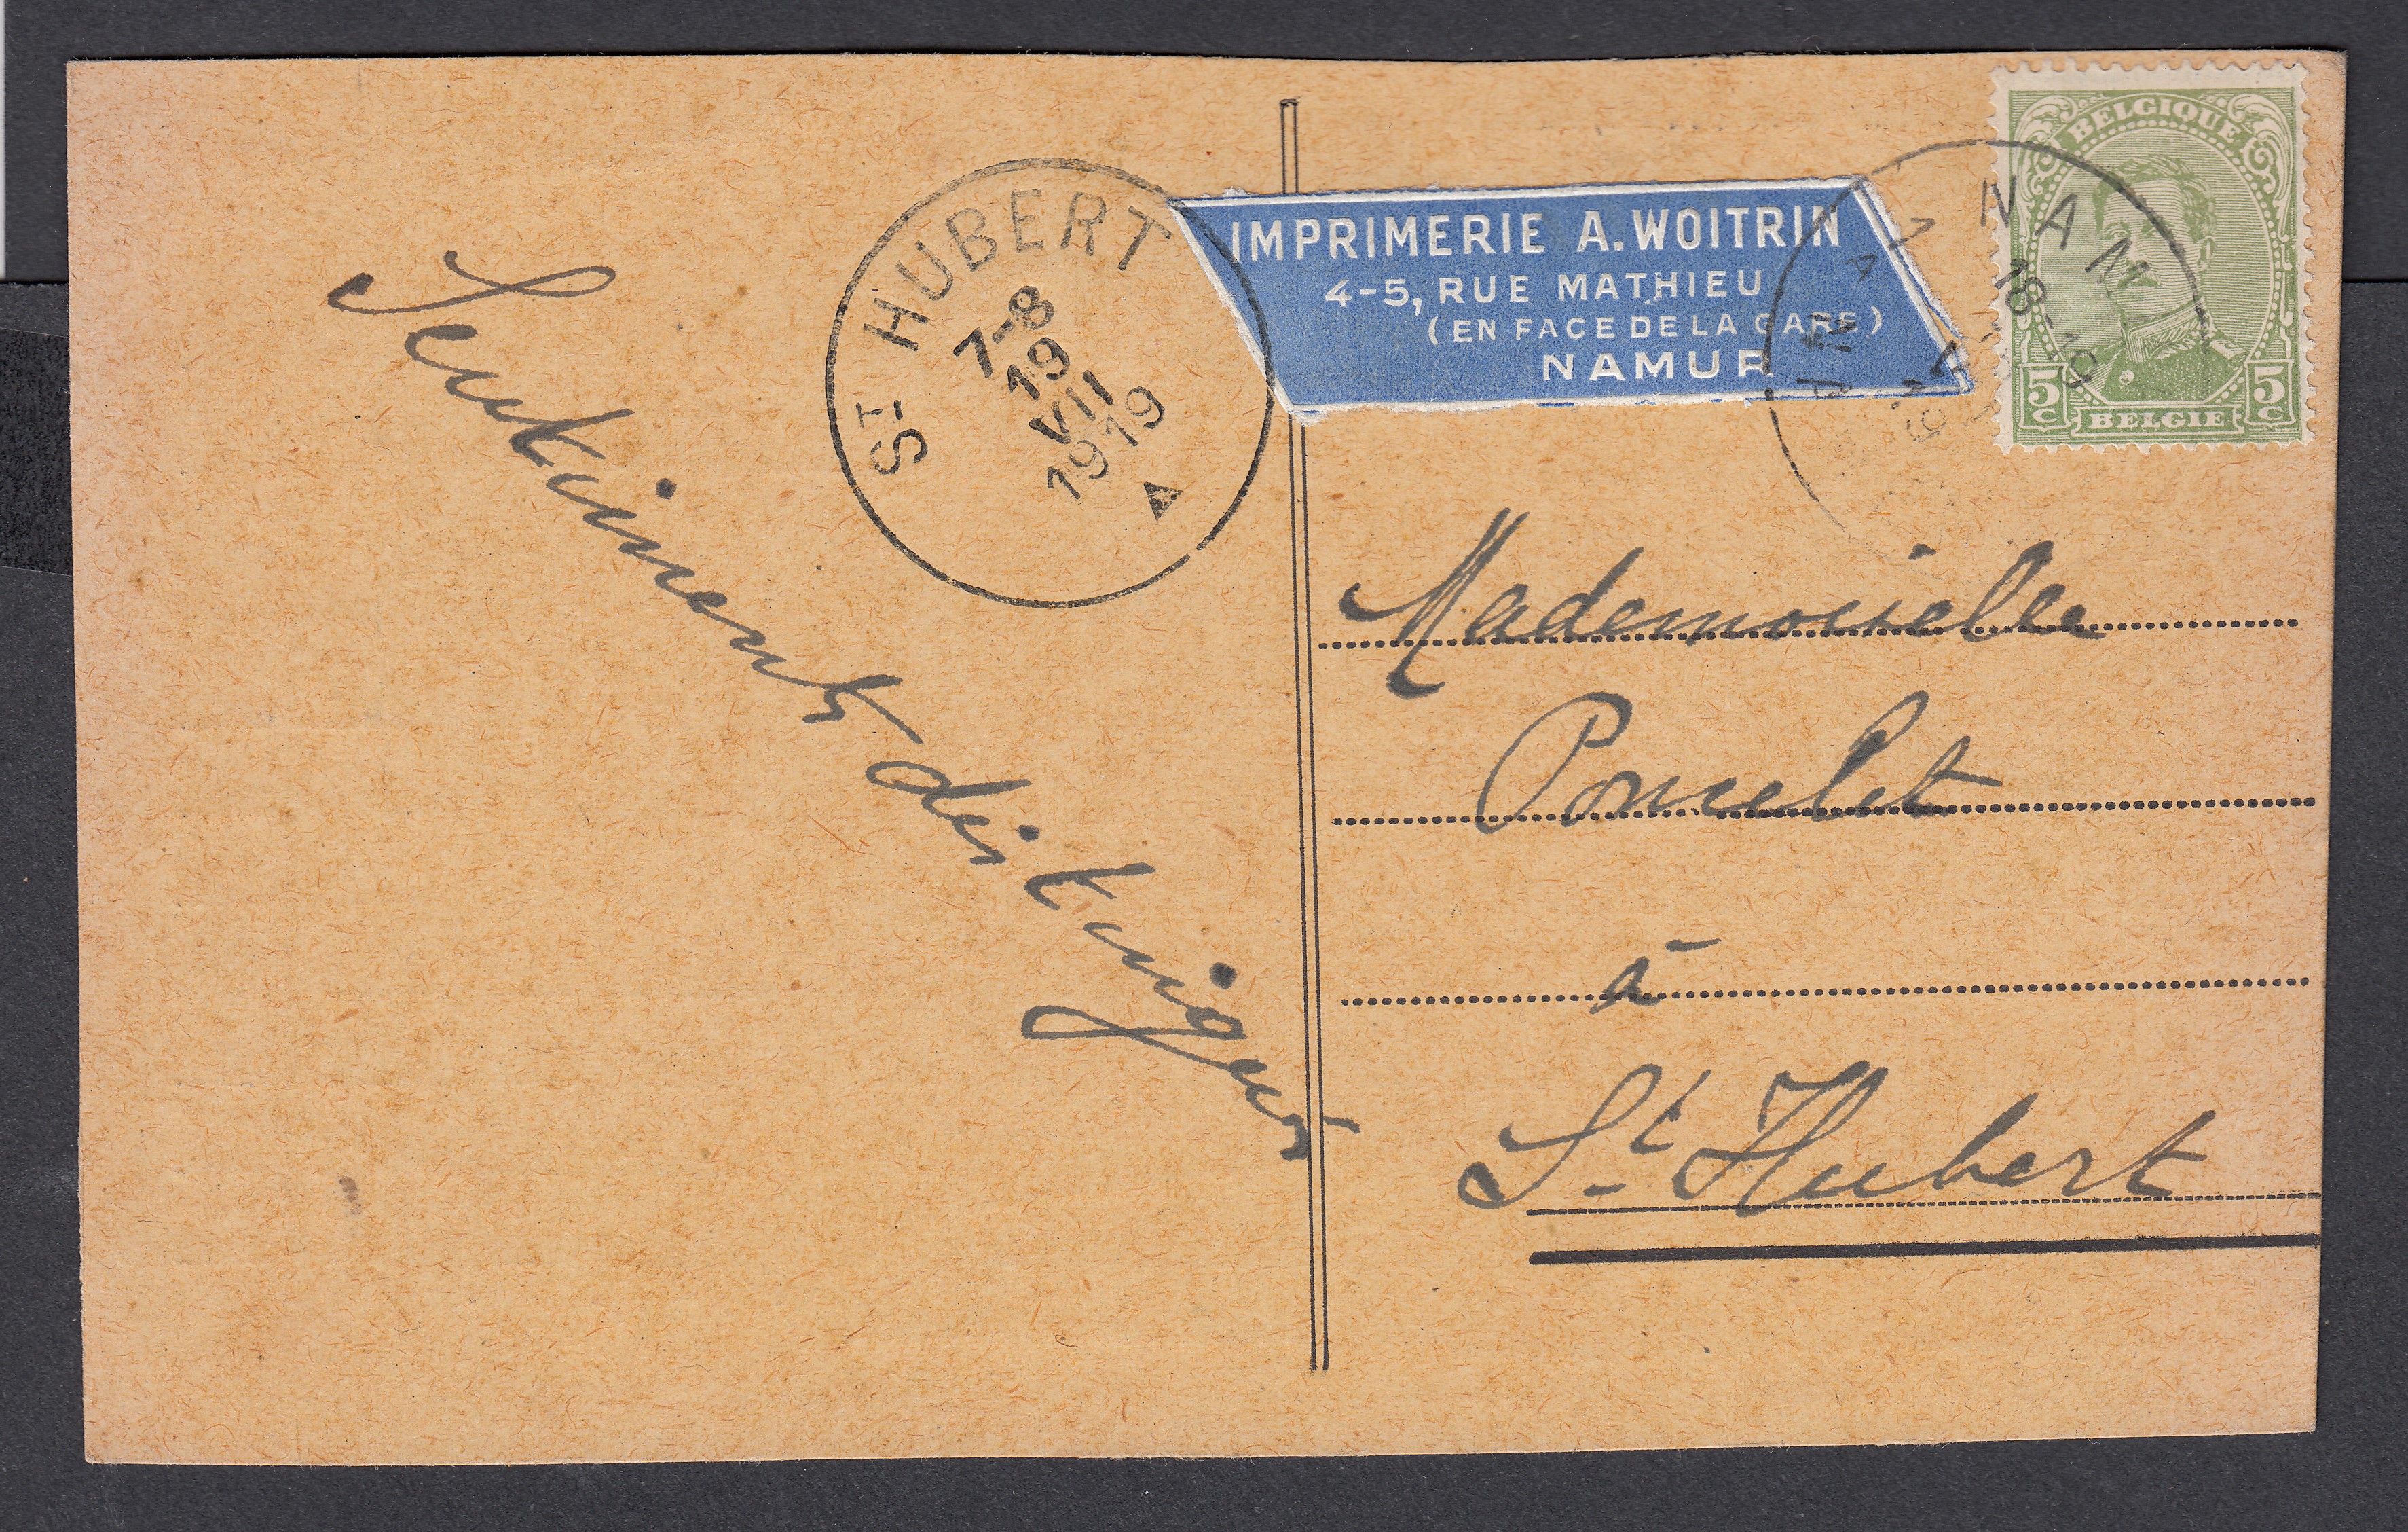 Sentiments distingués
ST HUBERT
7-8
19
VII
1919
IMPRIMERIE A. WOITRIN
4-5, RUE MATHIEU
(EN FACE DE LA GARE)
NAMUR
NAM
18-19
BELGIQUE
5c 5c
BELGIE
Mademoiselle
Poncelet
à
St Hubert